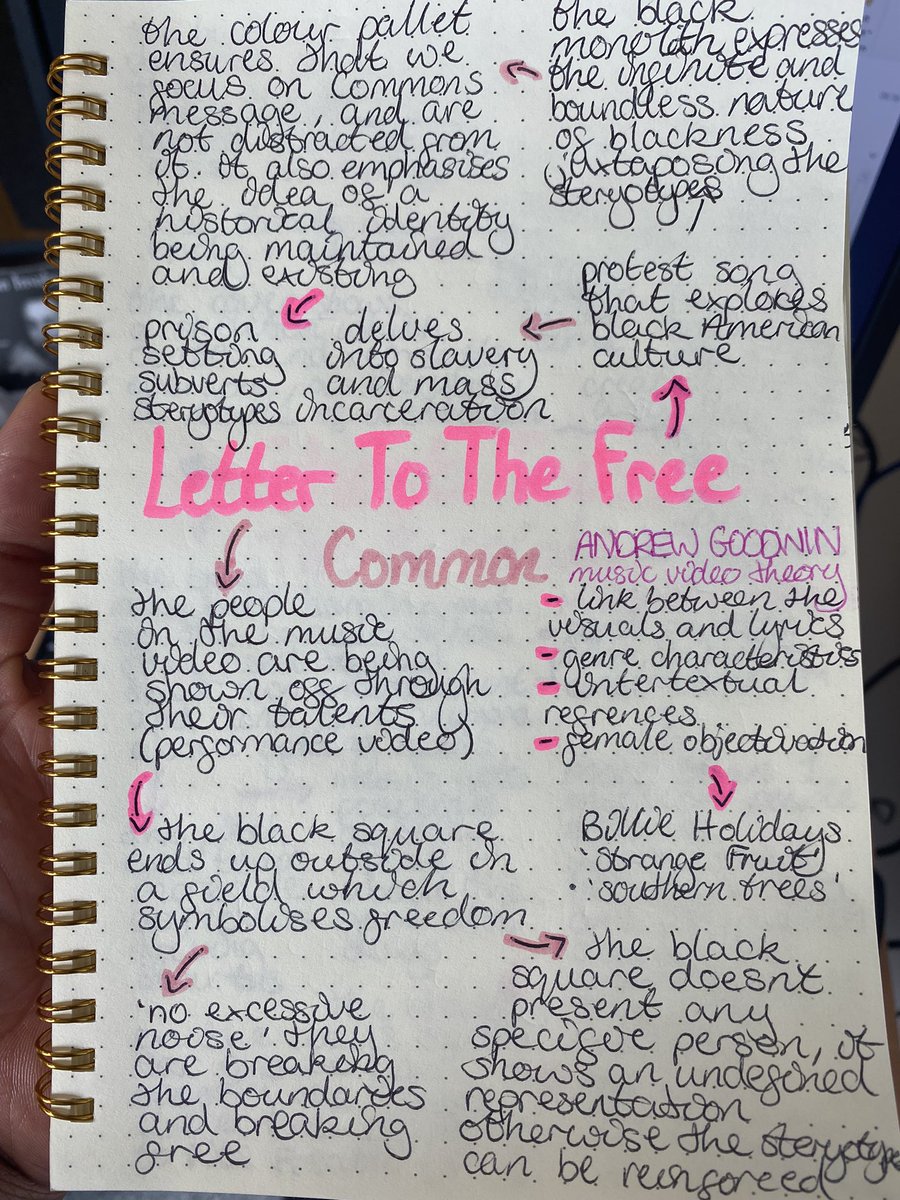 the colour pallet
ensures that we
focus on Commons
message, and are
not distracted from
it. it also emphasises
the idea of a
historical identity
being maintained
and existing
the black
monolith expresses
the infinite and
boundless nature
of blackness
juxtaposing the
steryotypes
prison
setting
subverts
steryotypes
delves
into slavery
and mass
incarceration
protest song
that explores
black American
culture
Letter To The Free
Common
the people
in the music
video are being
shown off through
their talents
(performance video)
ANDREW GOODWIN
music video theory
- link between the
visuals and lyrics
- genre characteristics
- intertextual
refrences
- female objectivation
the black square
ends up outside in
a field which
symbolises freedom
Billie Holidays
'Strange Fruit'
'southern trees'
'no excessive
noise' they
are breaking
the boundaries
and breaking
free
the black
square doesnt
present any
specific person, it
shows an undefined
representation
otherwise the steryotype
can be reinforced